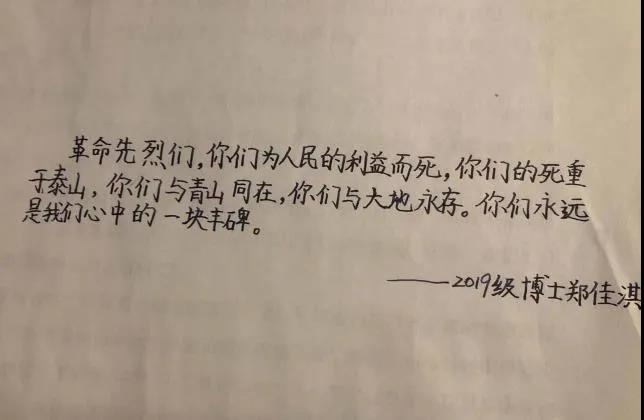 革命先烈们，你们为人民的利益而死，你们的死重
于泰山，你们与青山同在，你们与大地永存。你们永远
是我们心中的一块丰碑。
——2019级博士郑佳淇